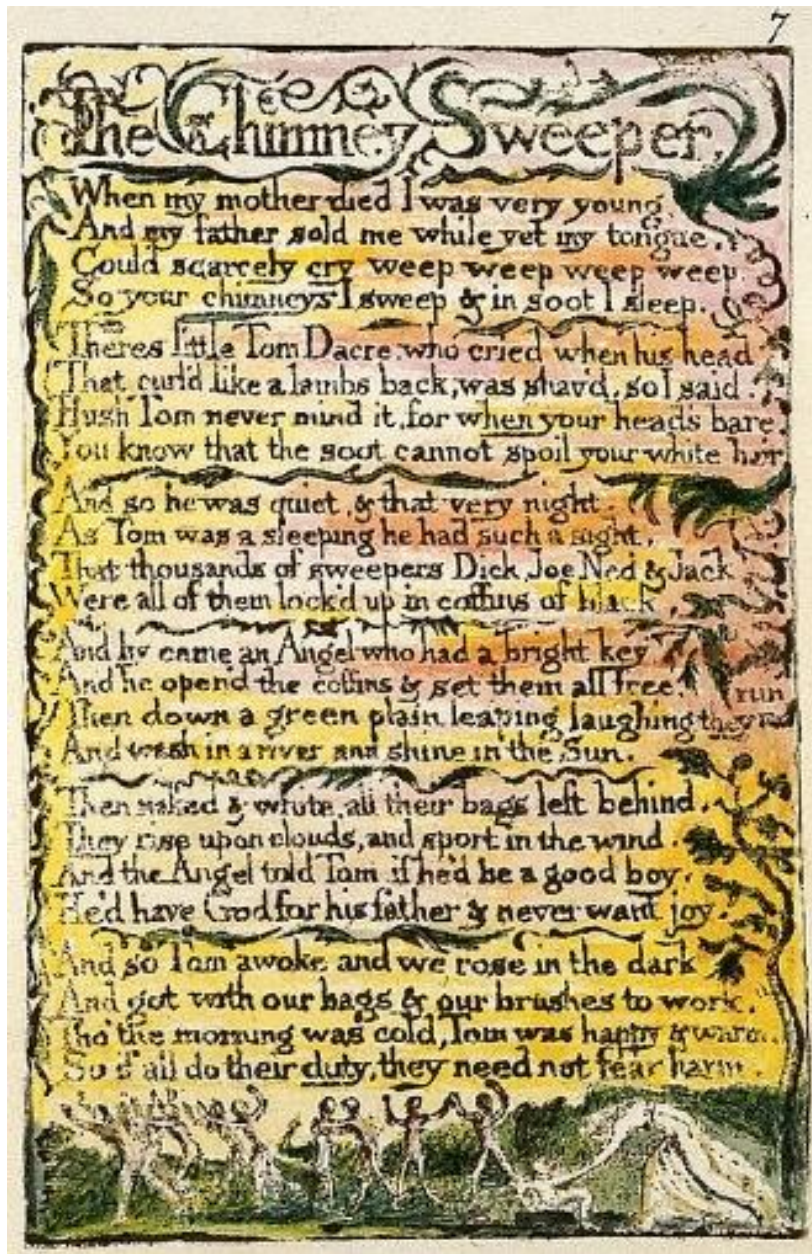 7
The Chimney Sweeper.
When my mother died I was very young
And my father sold me while yet my tongue.
Could scarcely cry weep weep weep weep.
So your chimneys I sweep & in soot I sleep.
Theres little Tom Dacre, who cried when his head
That curl'd like a lambs back, was shav'd, so I said.
Hush Tom never mind it, for when your head's bare,
You know that the soot cannot spoil your white hair
And so he was quiet, & that very night.
As Tom was a sleeping he had such a sight,
That thousands of sweepers Dick, Joe Ned & Jack
Were all of them lock'd up in coffins of black,
And by came an Angel who had a bright key
And he open'd the coffins & set them all free.
Then down a green plain leaping laughing they run
And wash in a river and shine in the Sun.
Then naked & white, all their bags left behind,
They rise upon clouds, and sport in the wind.
And the Angel told Tom if he'd be a good boy,
He'd have God for his father & never want joy.
And so Tom awoke and we rose in the dark
And got with our bags & our brushes to work.
Tho' the morning was cold, Tom was happy & warm.
So if all do their duty, they need not fear harm.